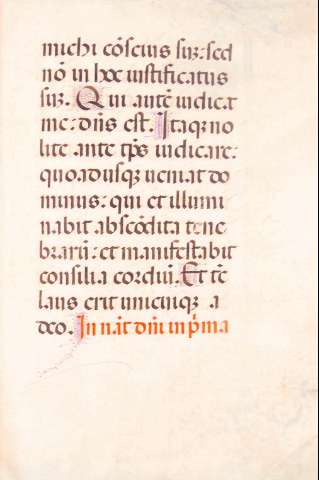 michi cōsciꝰ suꝫ: sed
nō in hoc iustificatus
suꝫ. Qui autē iudicat
me: dn̄s est. Itaqꝫ no
lite ante tp̄s iudicare:
quoadusqꝫ ueniat do
minus: qui et illumi
nabit abscōdita tene
brarū: et manifestabit
consilia cordiū. Et tē
laus erit unicuiqꝫ a
deo. In nāt dnī in pͥma